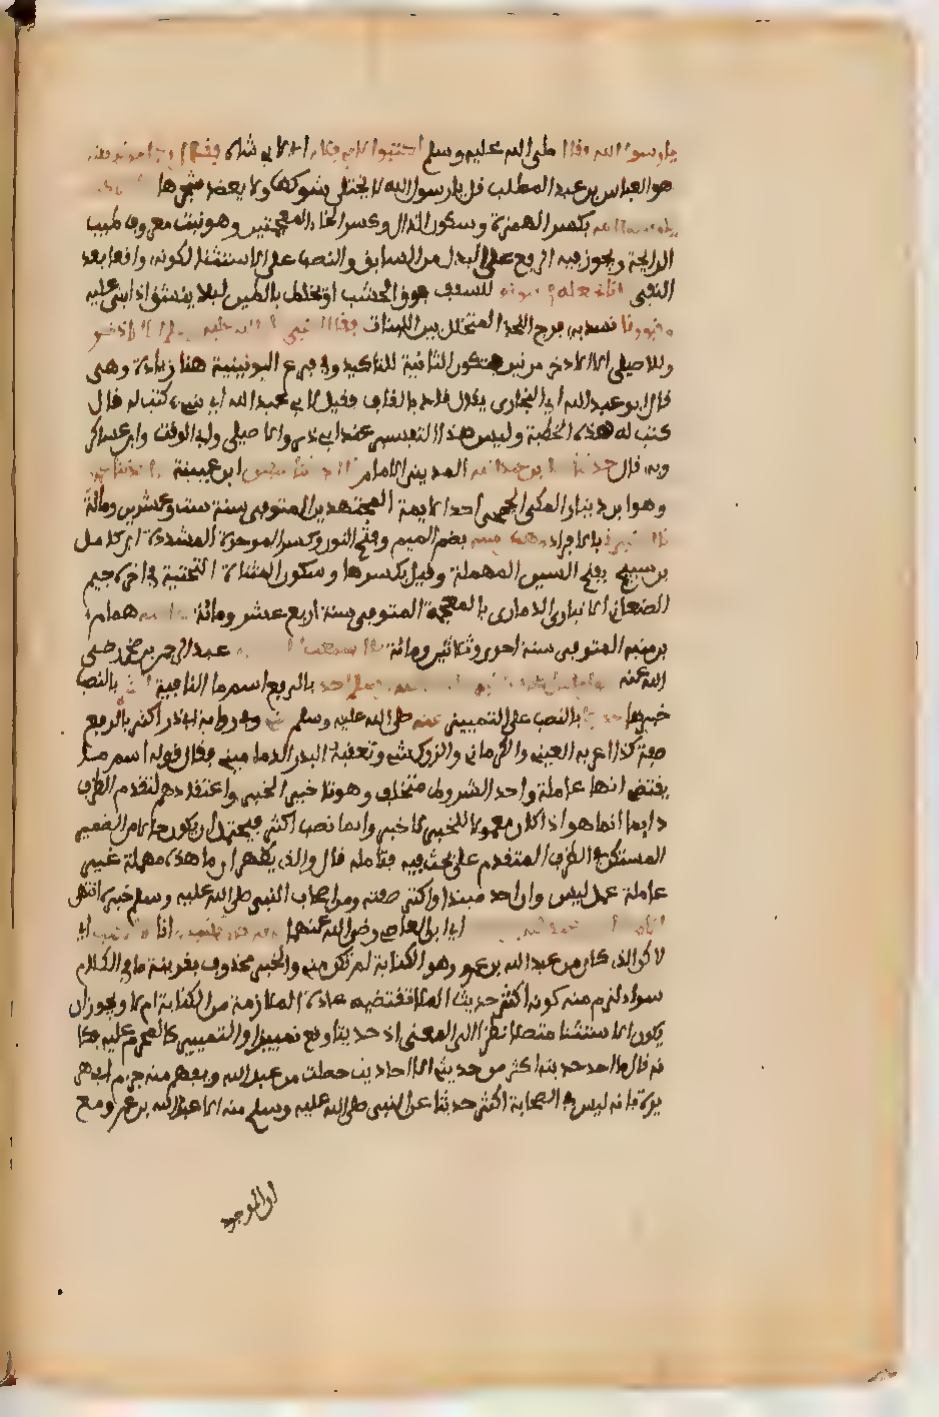 يا رسول الله فقال صلى الله عليه وسلم اكتبوا لابي فلان اي لابي شاه فقال رجل من قريش
هو العباس بن عبد المطلب قل يا رسول الله لا يختلى شوكها ولا يعضد شجرها
بكسر الهمزة وسكون الذال وكسر الخاء المعجمتين وهو نبت معروف طيب
الرايحة ويجوز فيه الرفع على البدل من السابق والنصب على الاستثناء لكونه واقعا بعد
النفي فانا نجعله في بيوتنا للسقف فوق الخشب او يخلط بالطين ليلا ينشق اذا بني عليه
وقبورنا نسد به فرج اللحد المتخلل بين اللبنات فقال النبي صلى الله عليه وسلم الا الاذخر
وللاصيلي الا الاذخر مرتين فتكون الثانية للتاكيد وفي فرع اليونينية هنا زيادة وهي
قال ابو عبد الله اي البخاري يقال يقاد بالقاف فقيل لابي عبد الله اي شيء كتب له قال
كتب له هذه الخطبة وليس هذا التفسير عند ابي ذر والاصيلي وابي الوقت وابن عساكر
وبه قال حدثنا علي بن عبد الله المديني الامام قال حدثنا سفين ابن عيينة
وهو ابن دينار المكي الجمحي احد الايمة المجتهدين المتوفى سنة ست وعشرين ومائة
قال اخبرني بالافراد وهب بن منبه بضم الميم وفتح النون وكسر الموحدة المشددة ابن كامل
بن سيج بفتح السين المهملة وقيل بكسرها وسكون المثناة التحتية في اخره جيم
الصنعاني الانباري الذماري بالمعجمة المتوفى سنة اربع عشر ومائة همام
بن منبه المتوفى سنة احدى وثلاثين ومائة قال سمعت عبد الرحمن بن صخر رضي
الله عنه احد بالرفع اسم ما النافية بالنصب
خبرها حديثا بالنصب على التمييز عنه صلى الله عليه وسلم مني وفي رواية ابي ذر اكثر بالرفع
صفة كذا اعربه العيني والكرماني والزركشي وتعقبه البدر الدماميني فقال قوله اسم ما
يقتضي انها عاملة واحد الشروط متخلف وهو تاخير الخبر واعتقادهم لتقدم الظرف
دايما انما هو اذا كان معمولا للخبر لا خبر واما نصب اكثر فيحتمل ان يكون حالا من الضمير
المستكن في الظرف المتقدم على بحث فيه فتامله قال والذي يظهر ان ما هذه مهملة غير
عاملة عمل ليس وان احد مبتدا واكثر صفته ومن اصحاب النبي صلى الله عليه وسلم خبره انتهى
اي ابن العاصي رضي الله عنهما فانه كان يكتب ولا انا اكتب اي
لاكن الذي كان من عبد الله بن عمرو وهو الكتابة لم تكن مني والخبر محذوف بقرينة ما في الكلام
سواء لزم منه كونه اكثر حديثا لما تقتضيه عادة الملازمة من الكتابة ام لا ويجوز ان
يكون الاستثناء متصلا نظرا الى المعنى اذ حديثا وقع تمييزا والتمييز كالمحكوم عليه فكا
نه قال ما احد حديثه اكثر من حديثي الا احاديث حصلت من عبد الله ويفهم منه جزم ابي هر
يرة بانه ليس في الصحابة اكثر حديثا عن النبي صلى الله عليه وسلم منه الا عبد الله بن عمرو مع
ان الموجود